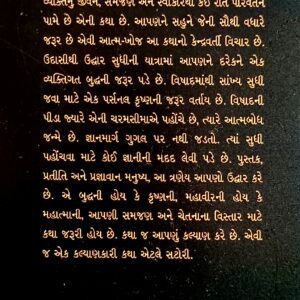 વ્યક્તિનું જીવન, સમજણ અને સ્વીકારથી કઈ રીતે પરિવર્તન
પામે છે એની કથા છે. આપણને સહુને જેની સૌથી વધારે
જરૂર છે એવી આત્મ-ખોજ આ કથાનો કેન્દ્રવર્તી વિચાર છે.
ઉદાસીથી ઉદ્ધાર સુધીની યાત્રામાં આપણને દરેકને એક
વ્યક્તિગત બુદ્ધની જરૂર પડે છે. વિષાદમાંથી સાંખ્ય સુધી
જવા માટે એક પર્સનલ કૃષ્ણની જરૂર વર્તાય છે. વિષાદની
પીડા જ્યારે એની ચરમસીમાએ પહોંચે છે, ત્યારે આત્મબોધ
જન્મે છે. જ્ઞાનમાર્ગ ગુગલ પર નથી જડતો. ત્યાં સુધી
પહોંચવા માટે કોઈ જ્ઞાનીની મદદ લેવી પડે છે. પુસ્તક,
પ્રતીતિ અને પ્રજ્ઞાવાન મનુષ્ય, આ ત્રણેય આપણો ઉદ્ધાર કરે
છે. એ બુદ્ધની હોય કે કૃષ્ણની, મહાવીરની હોય કે
મહાત્માની, આપણી સમજણ અને ચેતનાના વિસ્તાર માટે
કથા જરૂરી હોય છે. કથા જ આપણું કલ્યાણ કરે છે. એવી
જ એક કલ્યાણકારી કથા એટલે સટોરી.